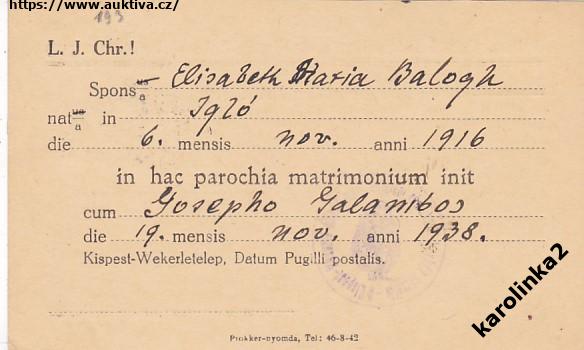 https://www.auktiva.cz/
193
L. J. Chr.!
Spons us/a Elisabeth Maria Balogh
nat us/a in Igló
die 6. mensis nov. anni 1916
in hac parochia matrimonium init
cum Josepho Galambos
die 19. mensis nov. anni 1938.
Kispest-Wekerletelep, Datum Pugilli postalis.
Prokker-nyomda, Tel: 46-8-42
karolinka2